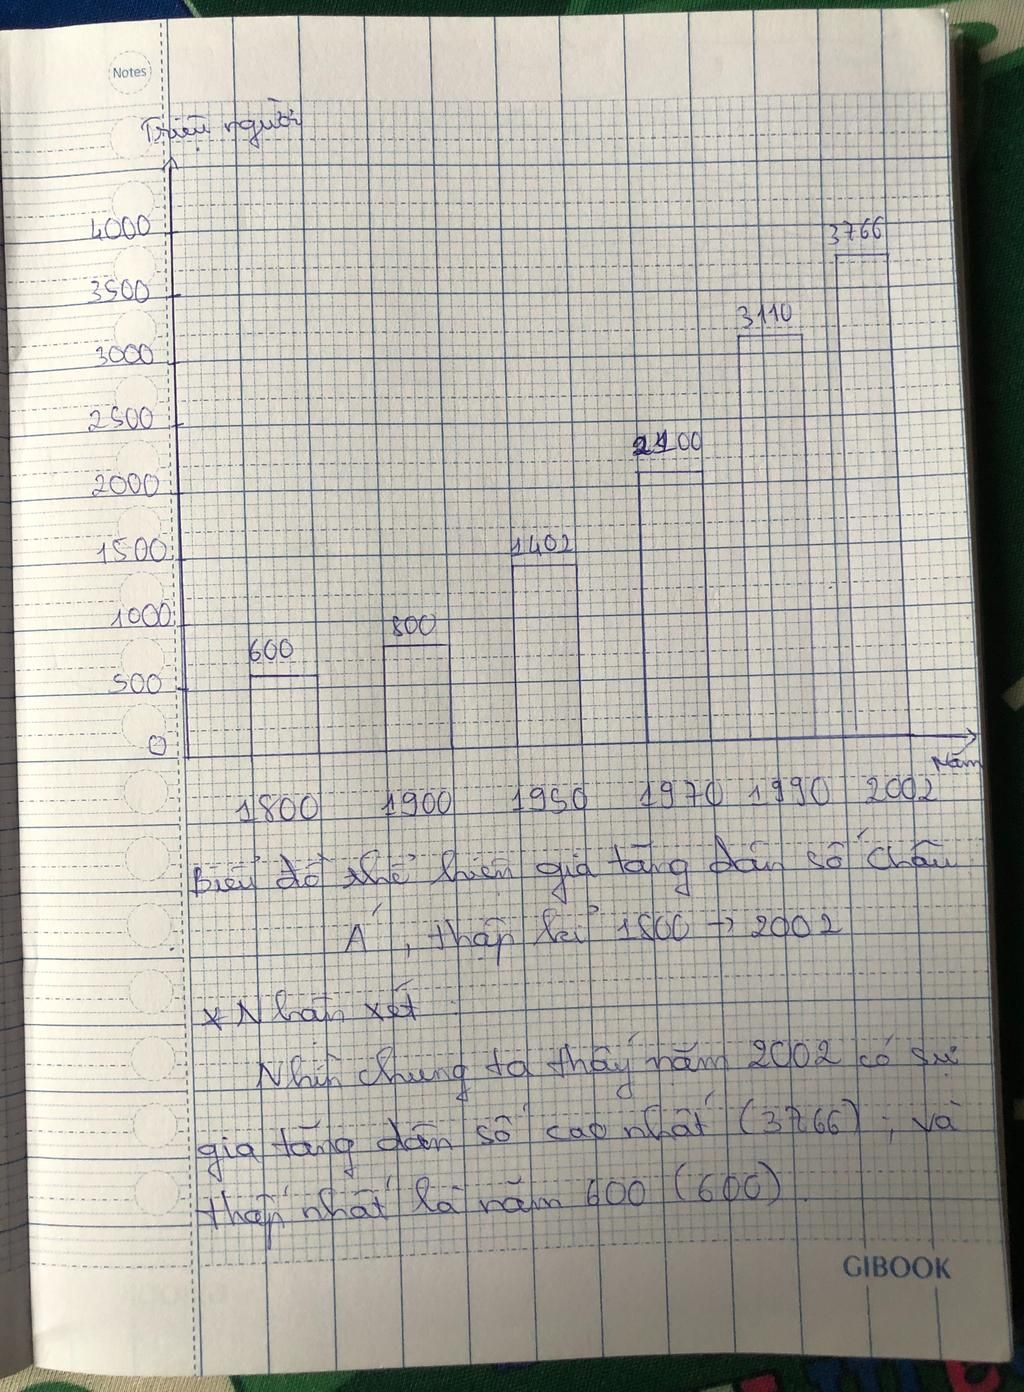 Notes
Triệu người
4000
3500
3000
2500
2000
1500
1000
500
0
600
800
1402
2100
3110
3766
Năm
1800 1900 1950 1970 1990 2002
Biểu đồ thể hiện gia tăng dân số châu
Á, thấp kỉ 1800 → 2002
* Nhận xét
Nhìn chung ta thấy năm 2002 có sự
gia tăng dân số cao nhất (3766); và
thấp nhất là năm 600 (600).
GIBOOK